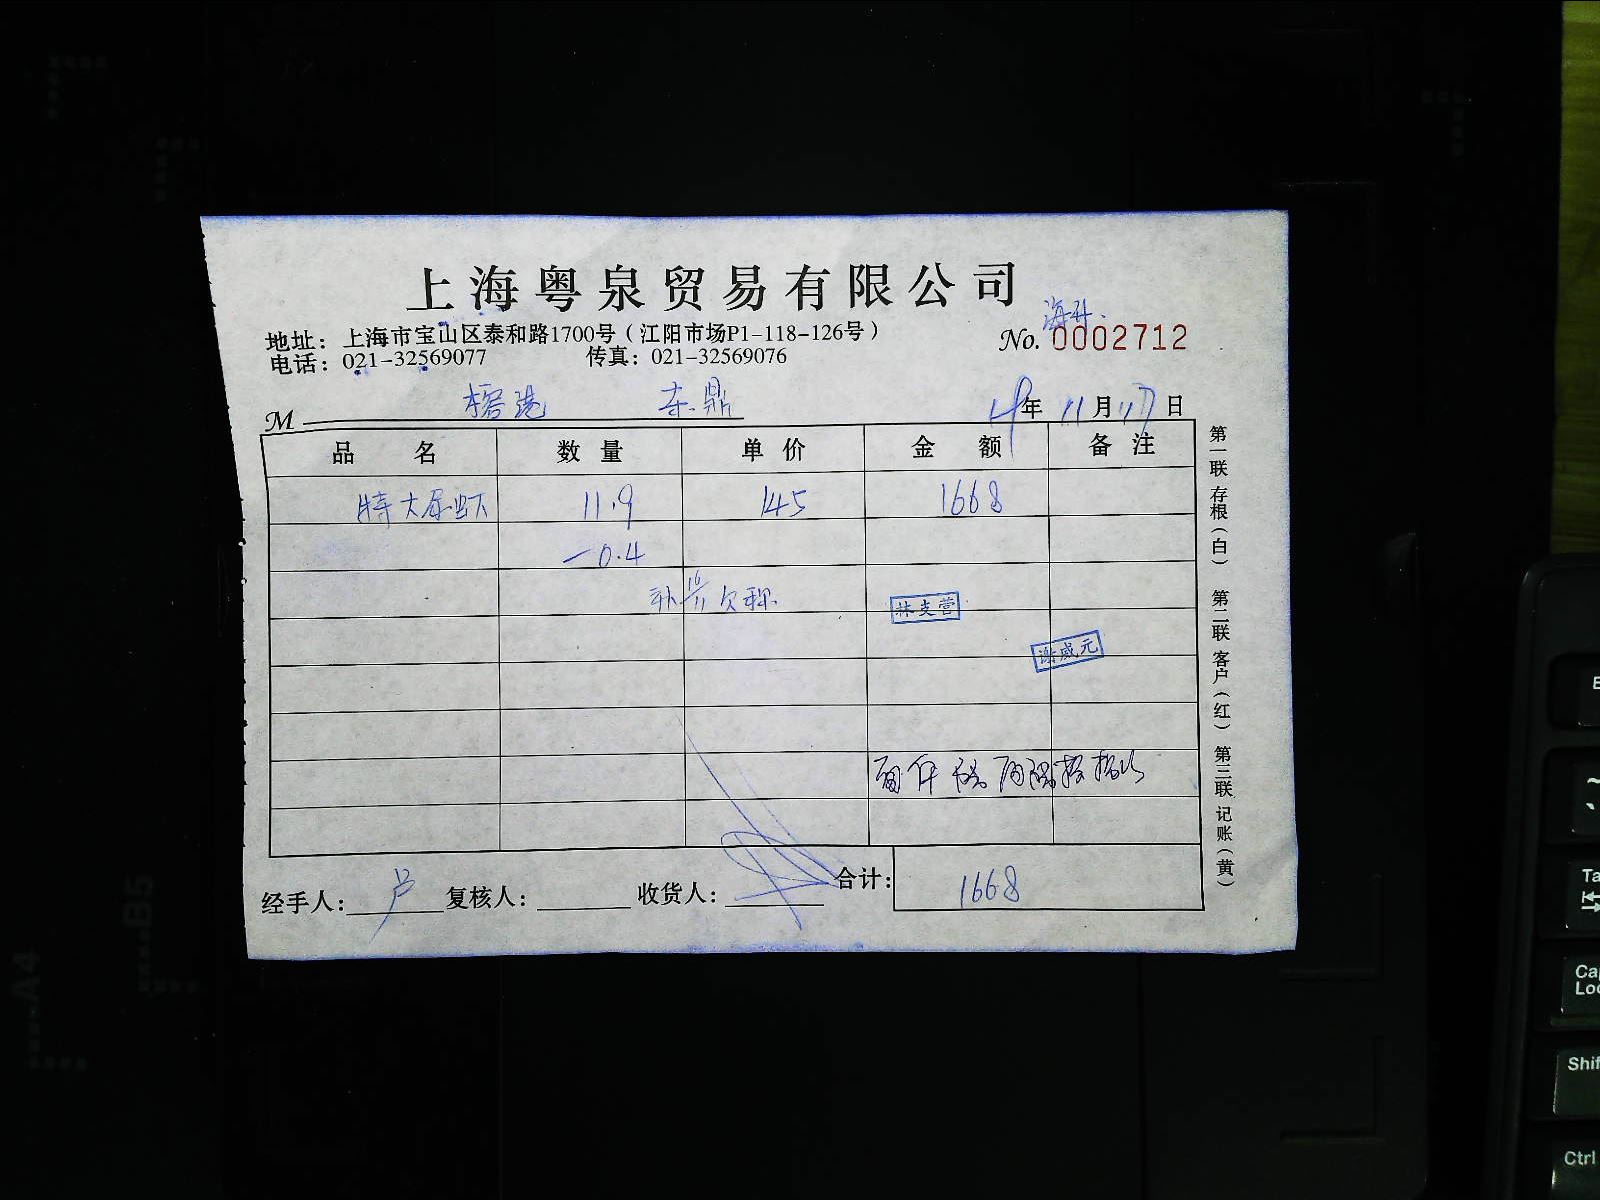 上海粤泉贸易有限公司
海升
地址：上海市宝山区泰和路1700号（江阳市场P1-118-126号）
No. 0002712
电话：021-32569077 传真：021-32569076
M 榕港 东鼎 年 11月17日
品名 数量 单价 金额 备注
特大尿虾 11.9 145 1668
-0.4
欠称
林支营
谢威元
经手人：卢 复核人： 收货人： 合计：1668
第一联 存根（白） 第二联 客户（红） 第三联 记账（黄）
-B5
-A4
Caps Lock
Shif
Ctrl